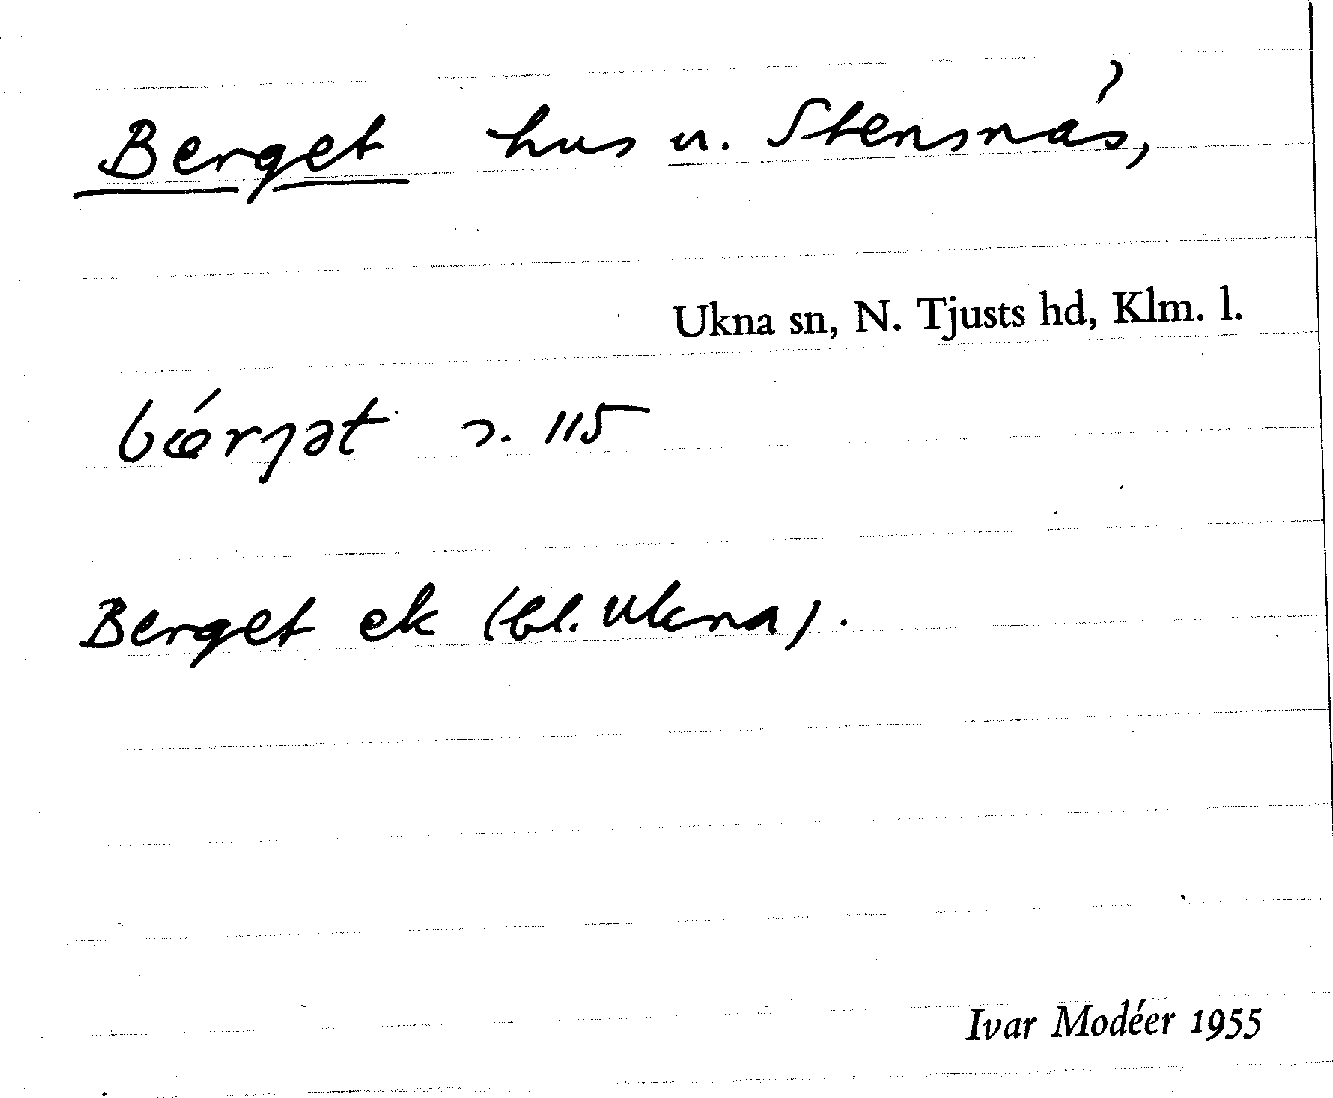 Berget hus u. Stensnäs,
Ukna sn, N. Tjusts hd, Klm. l.
bǽrjət s. 115
Berget ek (bl. Ukna).
Ivar Modéer 1955